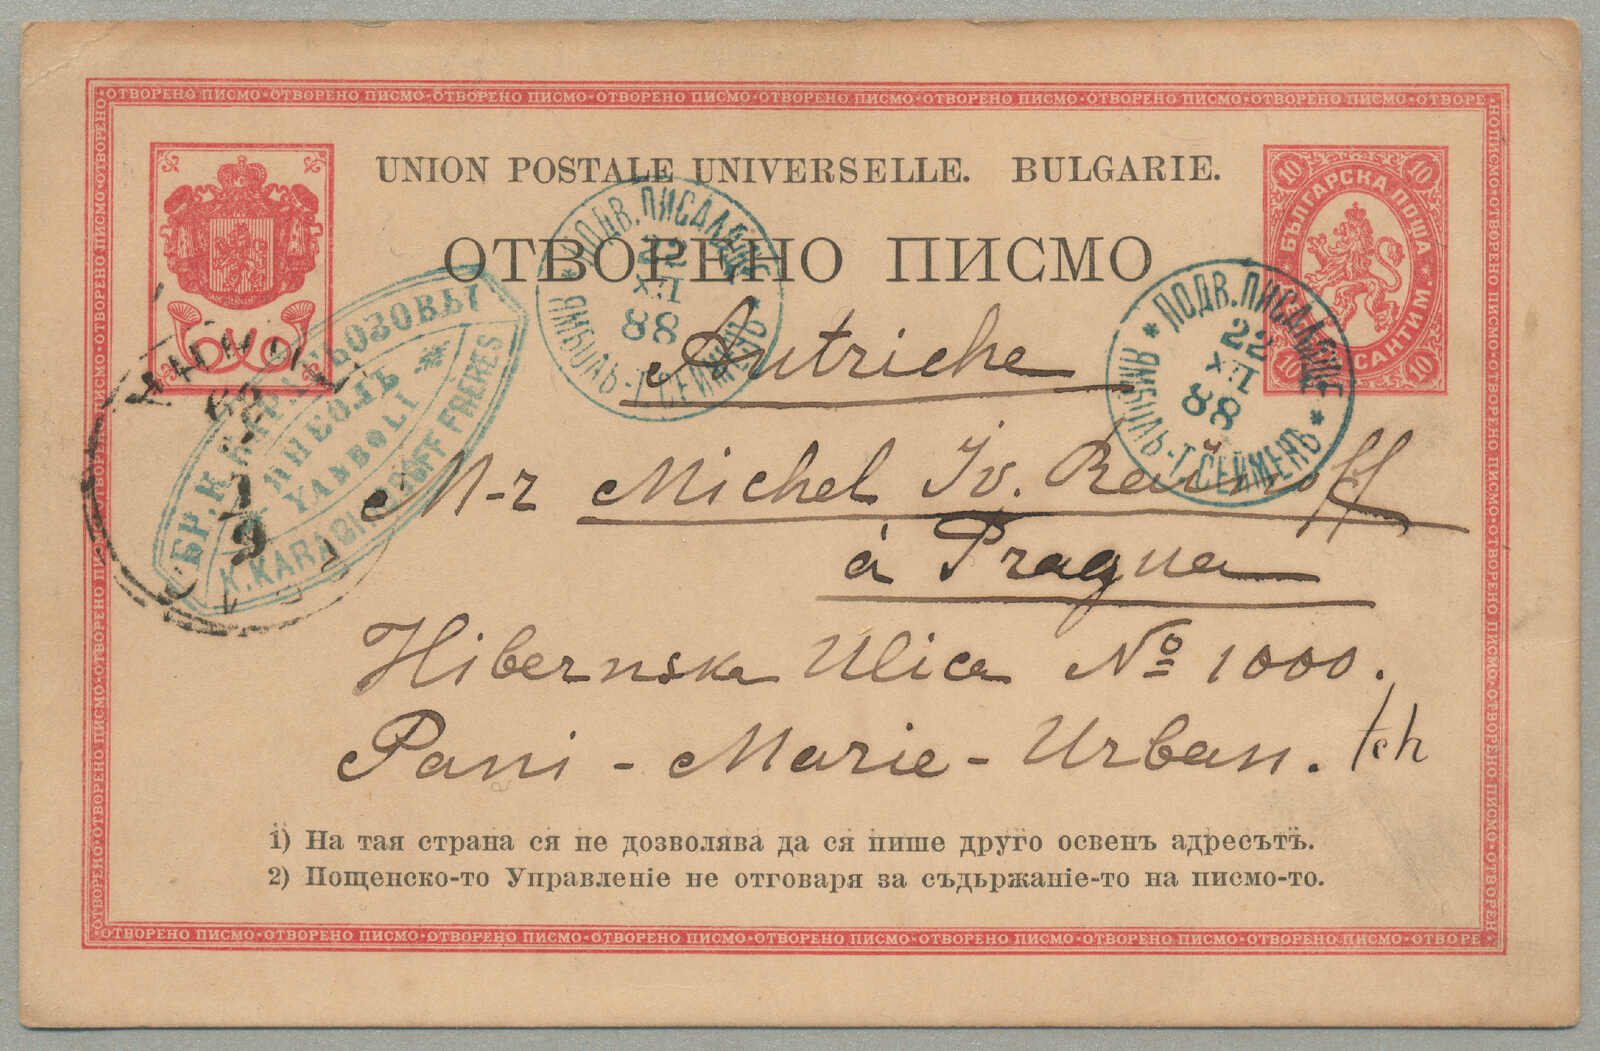 ОТВОРЕНО ПИСМО·ОТВОРЕНО ПИСМО·ОТВОРЕНО ПИСМО·ОТВОРЕНО ПИСМО·ОТВОРЕНО ПИСМО·ОТВОРЕНО ПИСМО·ОТВОРЕНО ПИСМО·ОТВОРЕНО ПИСМО·ОТВОРЕ
UNION POSTALE UNIVERSELLE. BULGARIE.
ОТВОРЕНО ПИСМО
10 10
БЪЛГАРСКА ПОЩА
САНТИМ.
10 10
* ПОДВ. ПИСАЛИЩЕ *
22
XII
88
ЯМБОЛЬ-Т. СЕЙМЕНЪ
* ПОДВ. ПИСАЛИЩЕ *
22
XII
88
ЯМБОЛЬ-Т. СЕЙМЕНЪ
БР. К.
YAMBOLI
FRERES
Autriche
M-r Michel Iv.
à Pragua
Hibernska Ulica № 1000.
Pani - Marie - Urban. tch
1) На тая страна ся не дозволява да ся пише друго освенъ адресътъ.
2) Пощенско-то Управление не отговаря за съдържание-то на писмо-то.
ОТВОРЕНО ПИСМО·ОТВОРЕНО ПИСМО·ОТВОРЕНО ПИСМО·ОТВОРЕНО ПИСМО·ОТВОРЕНО ПИСМО·ОТВОРЕНО ПИСМО·ОТВОРЕНО ПИСМО·ОТВОРЕНО ПИСМО·ОТВОРЕНО ПИСМО·ПЕ